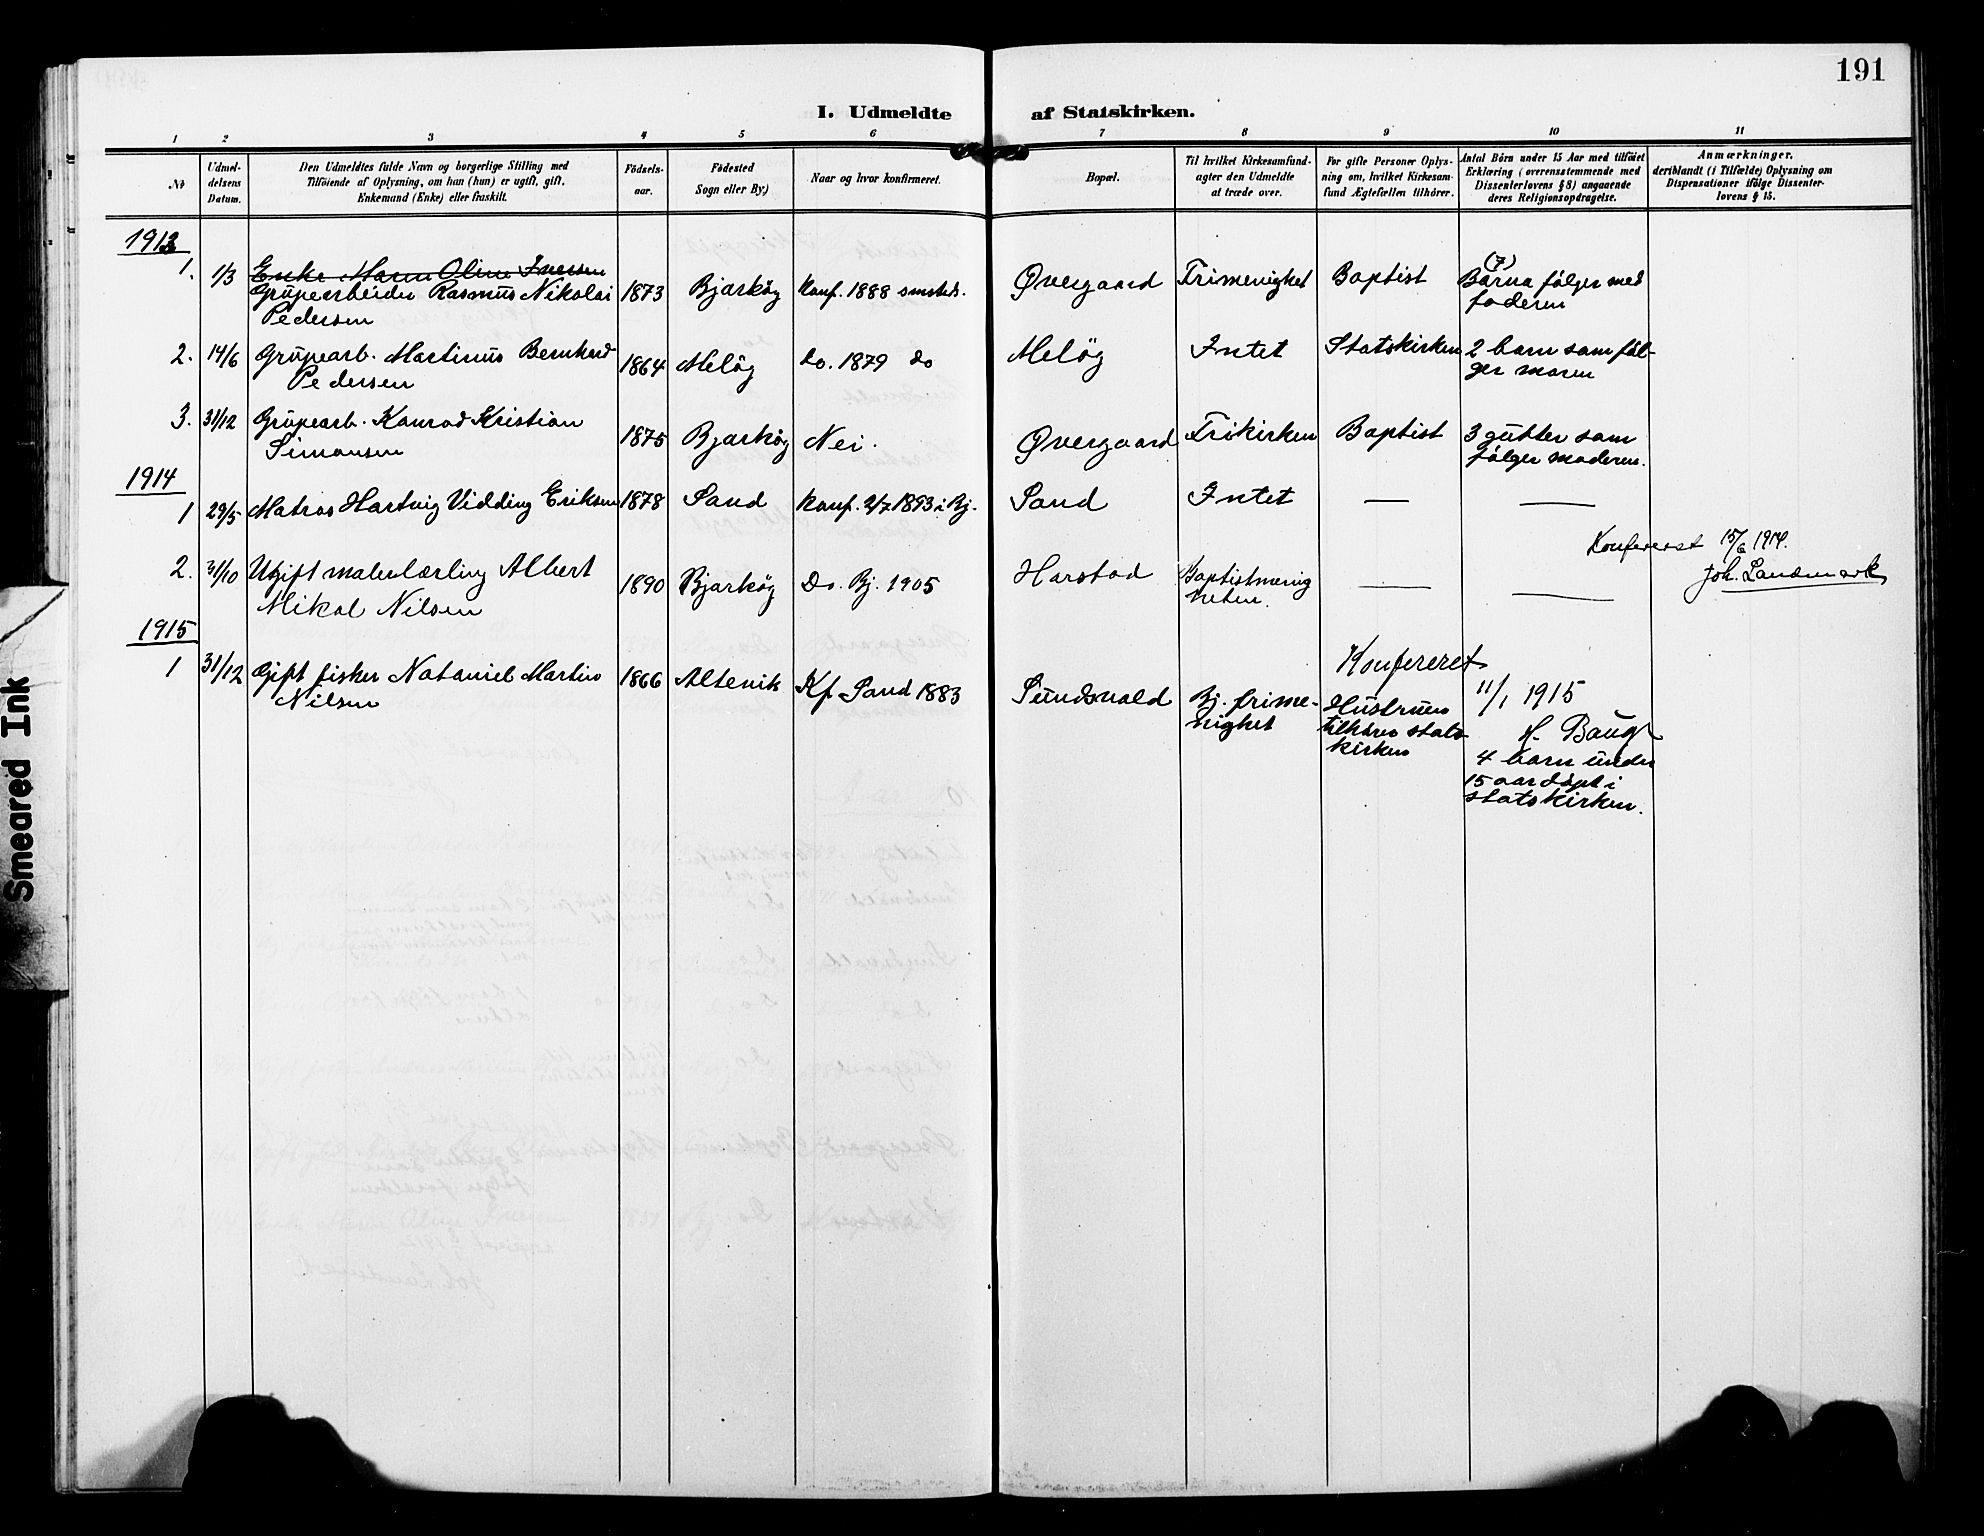 191
I. Udmeldte af Statskirken.
1 2 3 4 5 6 7 8 9 10 11
No
Udmel-
delsens
Datum.
Den Udmeldtes fulde Navn og borgerlige Stilling med
Tilføiende af Oplysning, om han (hun) er ugift, gift,
Enkemand (Enke) eller fraskilt.
Fødsels-
aar.
Fødested
Sogn eller By)
Naar og hvor konfirmeret.
Bopæl.
Til hvilket Kirkesamfund-
agter den Udmeldte
at træde over.
For gifte Personer Oplys-
ning om, hvilket Kirkesam-
fund Ægtefællen tilhører.
Antal Børn under 15 Aar med tilføiet
Erklæring (overensstemmende med
Dissenterlovens § 8) angaaende
deres Religionsopdragelse.
Anmærkninger,
deriblandt (i Tilfælde) Oplysning om
Dispensationer ifølge Dissenter-
lovens § 15.
1913
1. 1/3 Enke Maren Oline Iversen
Grubearbeider Rasmus Nikolai
Pedersen
1873 Bjarkøy Konf. 1888 smsteds.
Øvergaard Frimenighet Baptist
(7)
Børna følger med
faderen
2. 14/6 Grubearb. Martinus Bernhard
Pedersen
1864 Meløy do. 1879 do
Meløy Intet Statskirken 2 barn som føl-
ger moren
3. 31/12 Grubearb. Konrad Kristian
Simonsen
1875 Bjarkøy Nei.
Øvergaard Frikirken Baptist 3 gutter som
følger moderen.
1914
1 29/5 Matros Hartvig Vidding Eriksen 1878 Sand Konf. 2/7 1893 i Bj.
Sand Intet — —
Konfereret 15/6 1914.
Joh. Landmark
2. 31/10 Ugift malerlærling Albert
Mikal Nilsen
1890 Bjarkøy Do. Bj. 1905
Harstad Baptistmenig
heten. — —
1915
1 31/12 Gift fisker Nataniel Martin
Nilsen
1866 Altevik Kf. Sand 1883
Sundsvald Bj. frime-
nighet
Konfereret
11/1 1915
H. Baugh
Hustruen
tilhører stats
kirken
4 barn under
15 aar døpt i
statskirken.
Smeared Ink